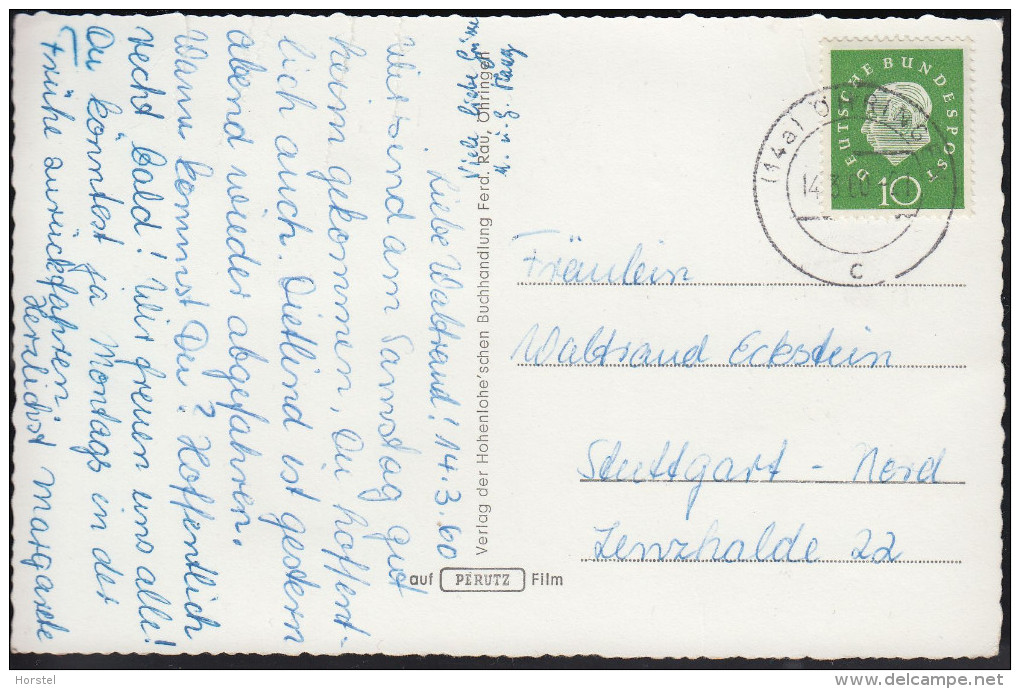 Liebe Waltraud! 14.3.60
Wir sind am Samstag gut
heim gekommen, Du hoffent-
lich auch. Dietlind ist gestern
abend wieder abgefahren.
Wann kommst Du? Hoffentlich
recht bald! Wir freuen uns alle!
Du könntest ja Montags in der
Frühe zurückfahren.
Herzlichst Margarete
Viele liebe Grüsse
Verlag der Hohenlohe'schen Buchhandlung Ferd. Rau, Öhringen
auf PERUTZ Film
DEUTSCHE BUNDESPOST
10
(14a) ÖHRINGEN
14.3.60
c
Fräulein
Waltraud Eckstein
Stuttgart - Nord
Lenzhalde 22
Horstel
www.delcampe.net